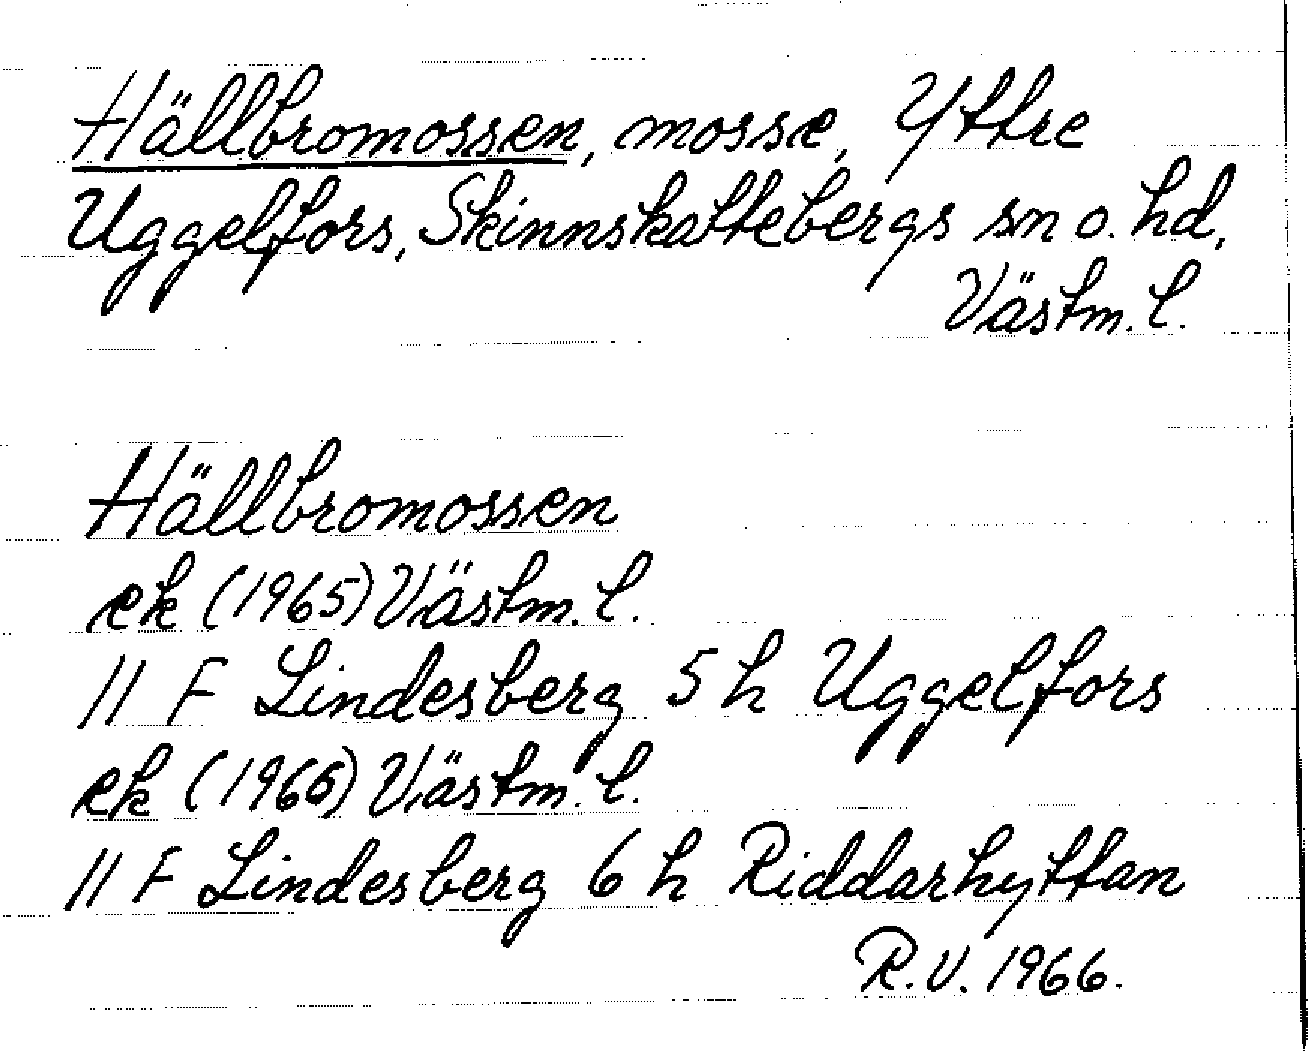 Hällbromossen, mosse, Yttre
Uggelfors, Skinnskattebergs sn o. hd,
Västm. l.
Hällbromossen
ek (1965) Västm. l.
11 F Lindesberg 5 h Uggelfors
ek (1966) Västm. l.
11 F Lindesberg 6 h Riddarhyttan
R.V. 1966.